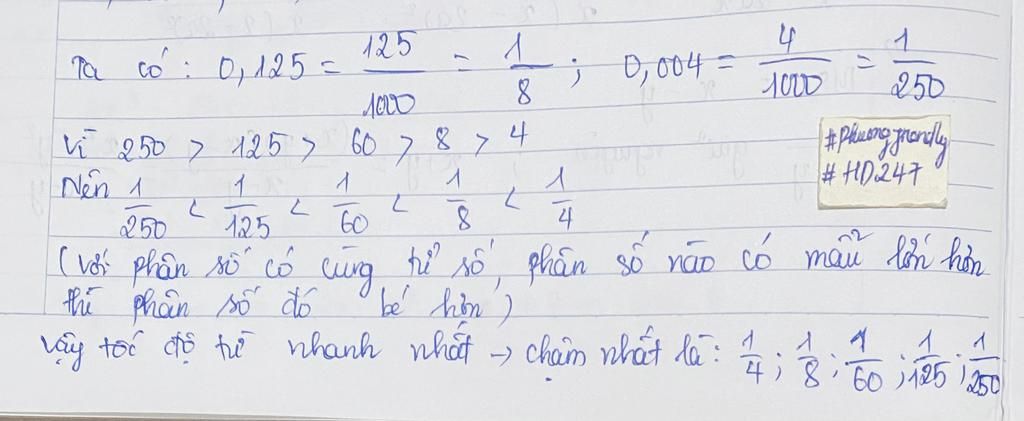 Ta có : 0,125 = 125/1000 = 1/8 ; 0,004 = 4/1000 = 1/250
Vì 250 > 125 > 60 > 8 > 4
Nên 1/250 < 1/125 < 1/60 < 1/8 < 1/4
(với phân số có cùng tử số, phân số nào có mẫu lớn hơn
thì phân số đó bé hơn)
Vậy tốc độ từ nhanh nhất → chậm nhất là: 1/4 ; 1/8 ; 1/60 ; 1/125 ; 1/250
#phuongfrendly
#HD247